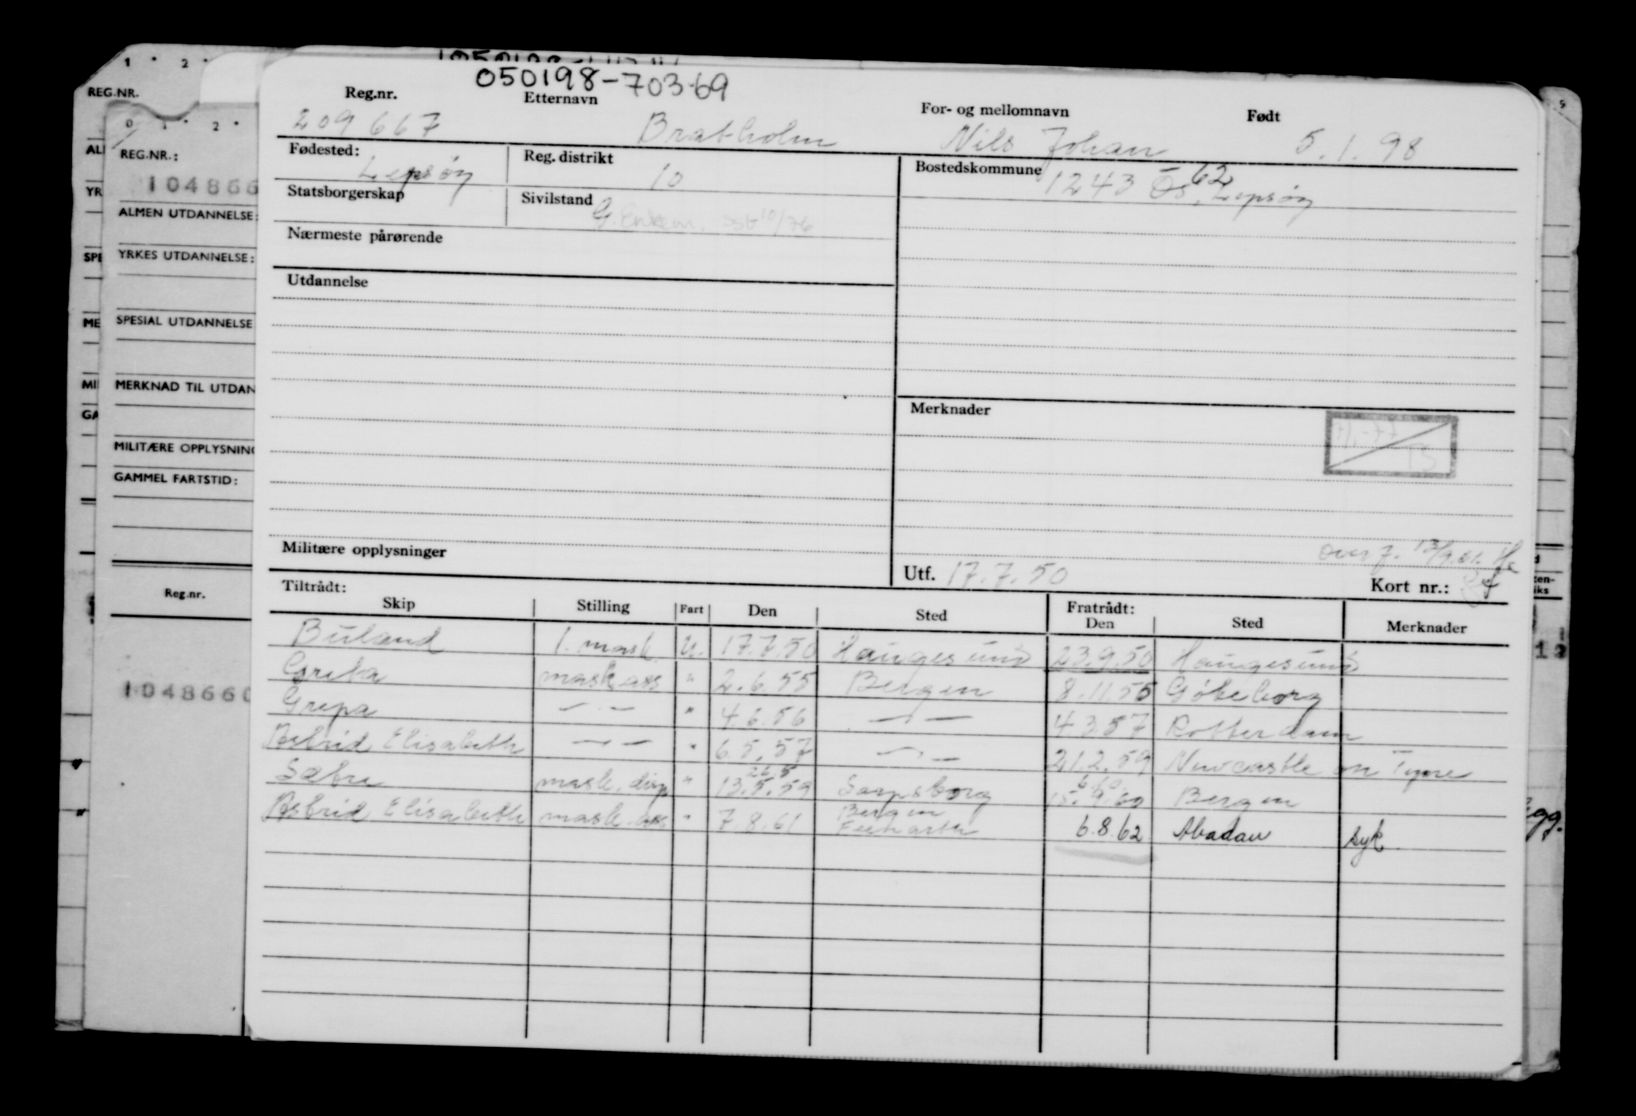 1 2
REG.NR.
0 1 2
REG.NR.:
104866
ALMEN UTDANNELSE:
YRKES UTDANNELSE:
SPESIAL UTDANNELSE
MERKNAD TIL UTDAN
MILITÆRE OPPLYSNIN
GAMMEL FARTSTID:
Reg.nr.
1048660
050198-70369
Reg.nr. Etternavn For- og mellomnavn Født
209667 Bratholm Nils Johan 5.1.98
Fødested: Lepsøy Reg. distrikt 10 Bostedskommune 1243 Os, Lepsøy
62
Statsborgerskap Sivilstand G. Enkem.
Nærmeste pårørende
Utdannelse
Merknader
Militære opplysninger
Utf. 17.7.50 Kort nr.:
Tiltrådt: Fratrådt:
Skip Stilling Fart Den Sted Den Sted Merknader
Buland 1. mask. U. 17.7.50 Haugesund 23.9.50 Haugesund
Greta mask ass " 2.6.55 Bergen 8.11.55 Gøteborg
Grepa — " — " 4.6.56 — " — 4.3.57 Rotterdam
Astrid Elisabeth — " — " 6.5.57 — " — 21.2.59 Newcastle on Tyne
Sabra mask. disp " 13.5.59 Sarpsborg Bergen
Astrid Elisabeth mask. ass " 7.8.61 Bergen 6.8.62 Abadan syk.